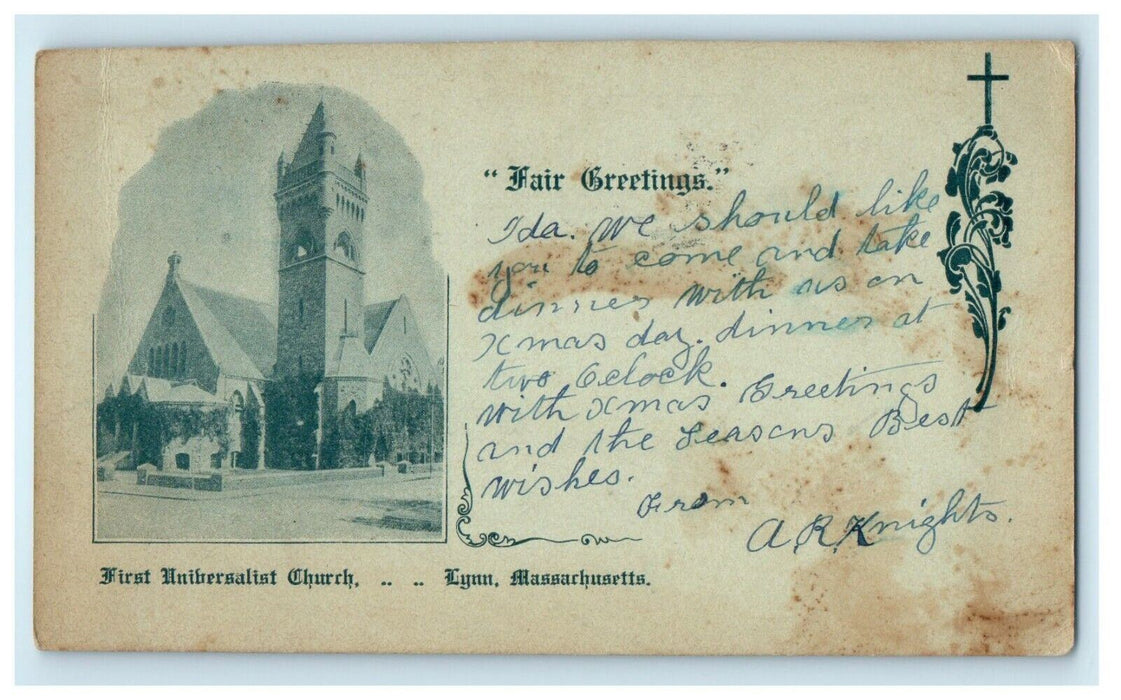 "Fair Greetings."
Ida. We should like
you to come and take
dinner with us on
Xmas day. dinner at
two Oclock.
with Xmas Greetings
and the Seasons Best
wishes.
From
A. R. Knights.
First Universalist Church, .. .. Lynn, Massachusetts.